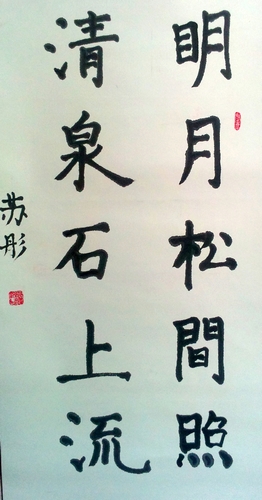 明月松間照
清泉石上流
苏彤